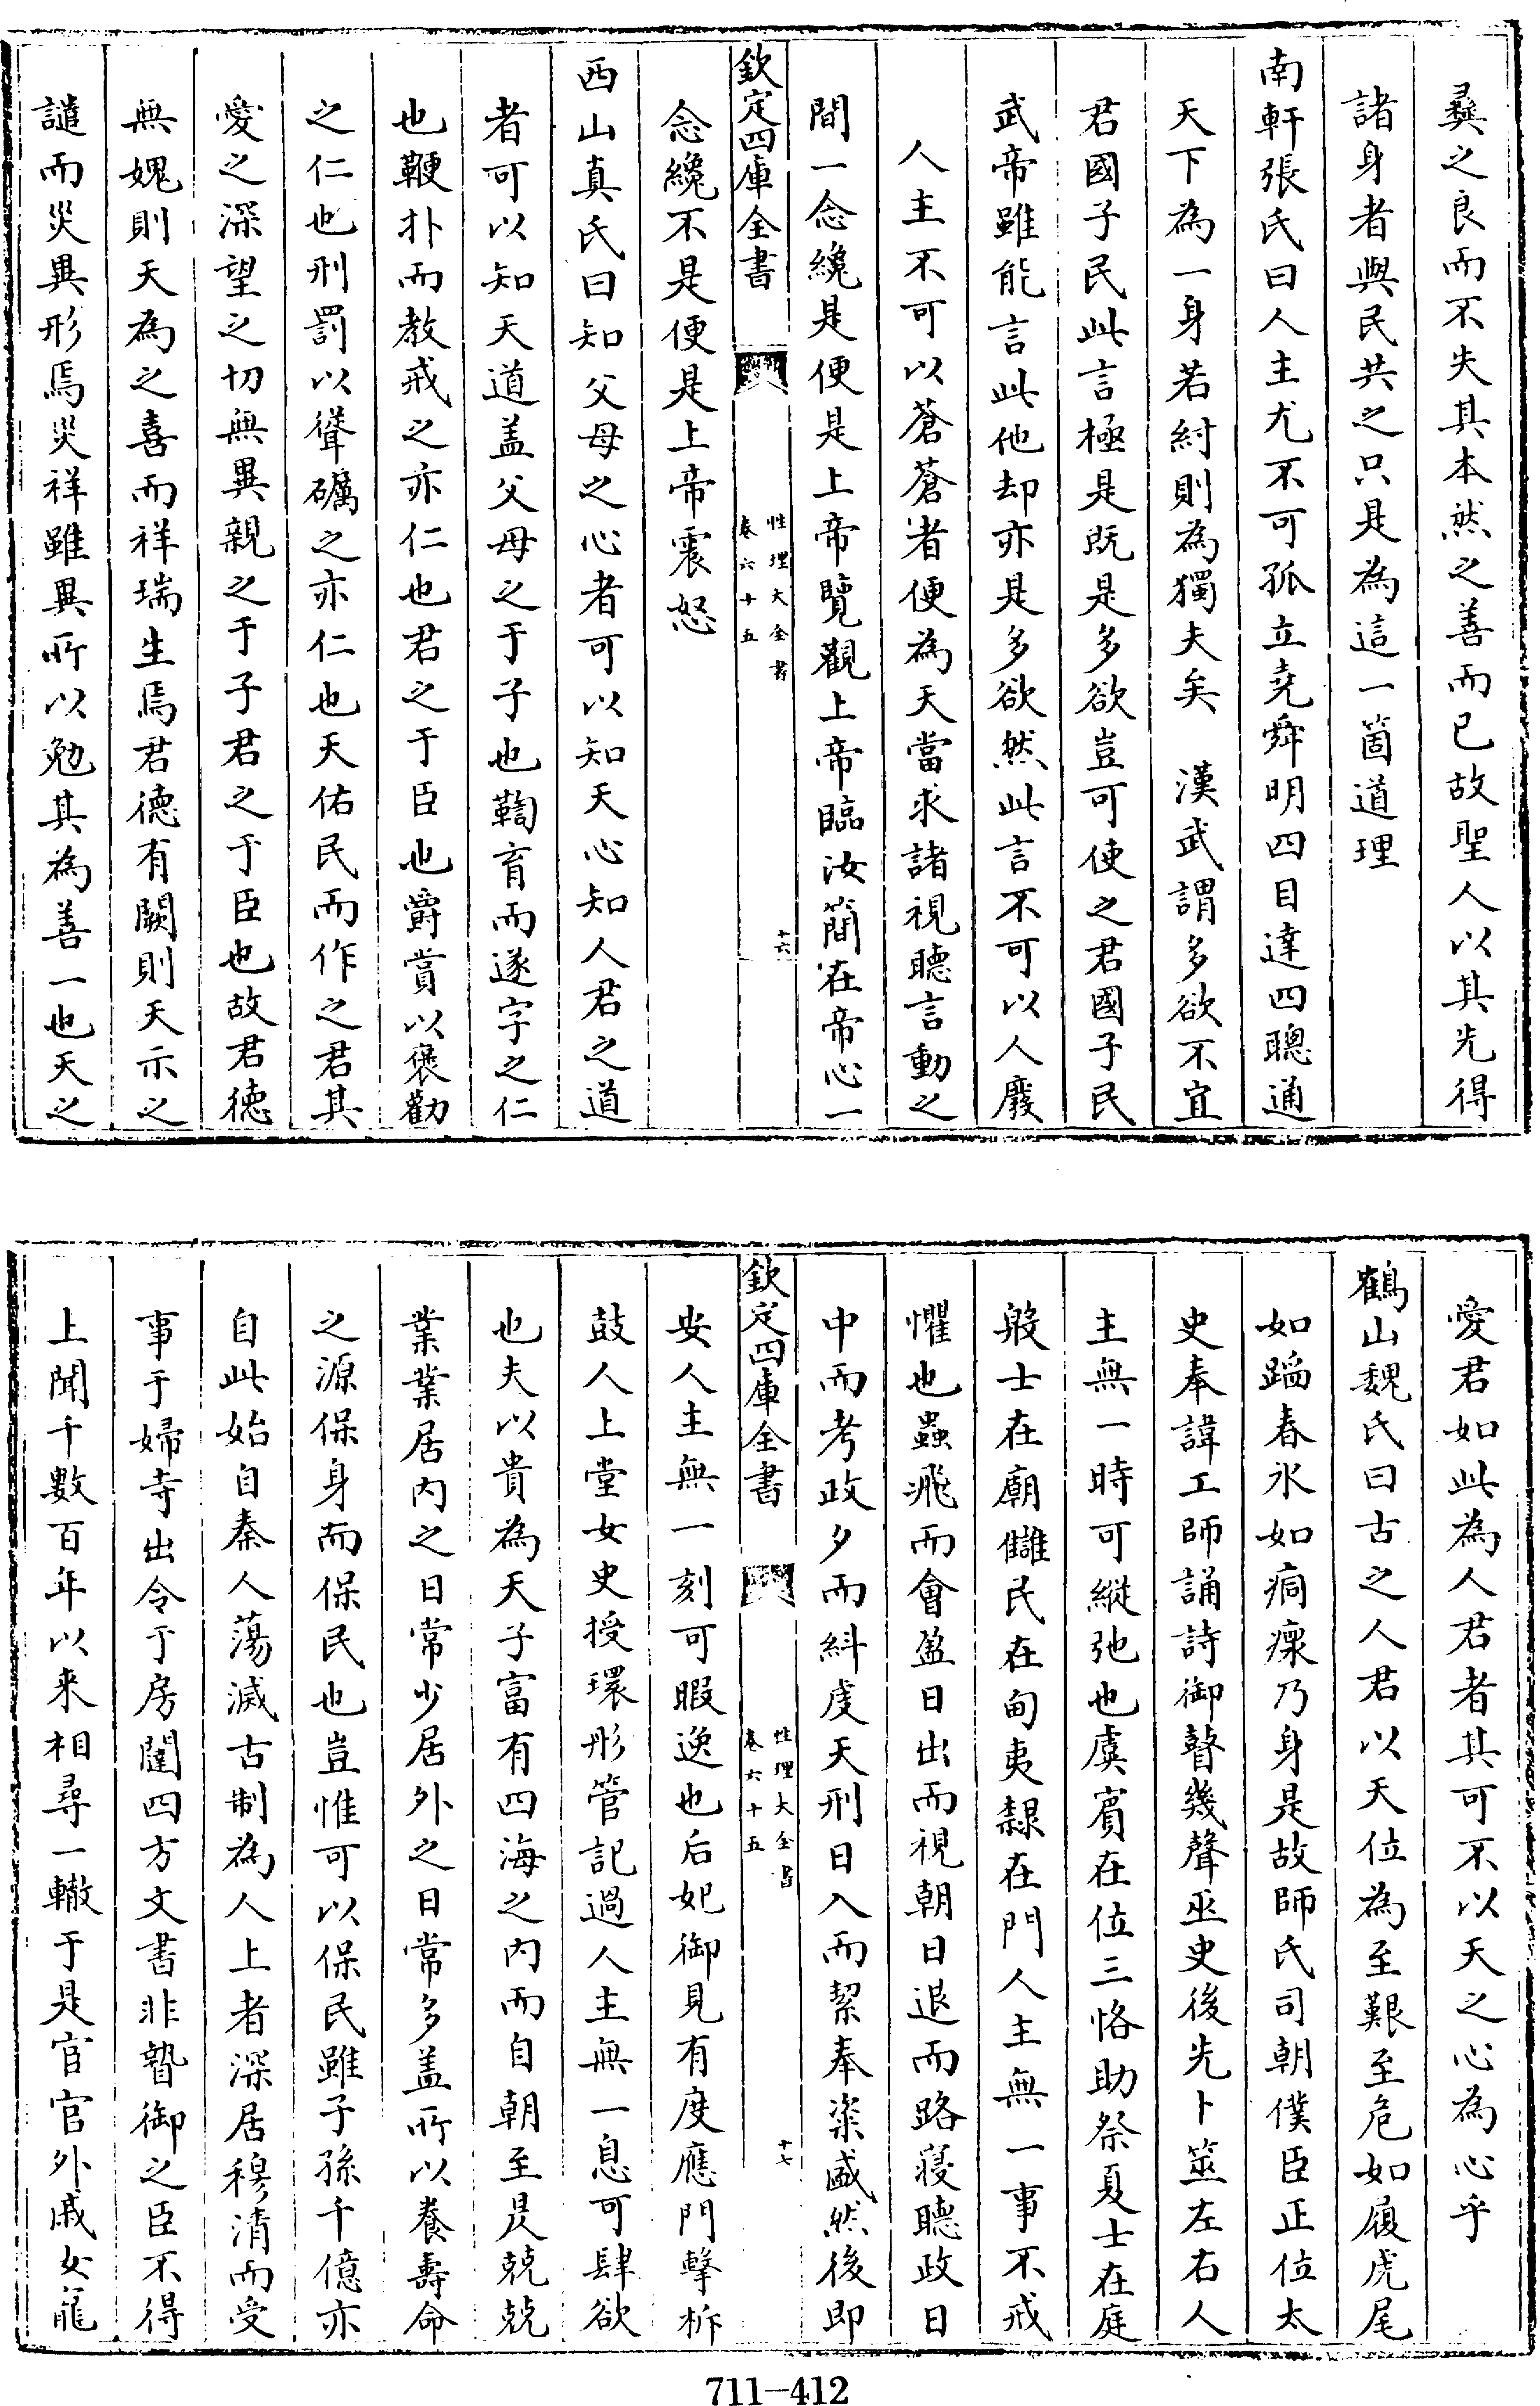 彞之良而不失其本然之善而已故聖人以其先得
諸身者與民共之只是為這一箇道理
南軒張氏曰人主尤不可孤立堯舜明四目達四聰通
天下為一身若紂則為獨夫矣　漢武謂多欲不宜
君國子民此言極是既是多欲豈可使之君國子民
武帝雖能言此他却亦是多欲然此言不可以人廢
人主不可以蒼蒼者便為天當求諸視聽言動之
間一念纔是便是上帝覽觀上帝臨汝簡在帝心一
欽定四庫全書
性理大全書
卷六十五
十六
念纔不是便是上帝震怒
西山真氏曰知父母之心者可以知天心知人君之道
者可以知天道盖父母之于子也鞠育而遂字之仁
也鞭扑而教戒之亦仁也君之于臣也爵賞以褒勸
之仁也刑罰以聳礪之亦仁也天佑民而作之君其
愛之深望之切無異親之于子君之于臣也故君德
無媿則天為之喜而祥瑞生焉君德有闕則天示之
譴而災異形焉災祥雖異所以勉其為善一也天之
愛君如此為人君者其可不以天之心為心乎
鶴山魏氏曰古之人君以天位為至艱至危如履虎尾
如蹈春氷如痌瘝乃身是故師氏司朝僕臣正位太
史奉諱工師誦詩御瞽幾聲巫史後先卜筮左右人
主無一時可縱弛也虞賓在位三恪助祭夏士在庭
殷士在廟讎民在甸夷隸在門人主無一事不戒
懼也蟲飛而會盈日出而視朝日退而路寢聽政日
中而考政夕而糾虔天刑日入而絜奉粢盛然後即
欽定四庫全書
性理大全書
卷六十五
十七
安人主無一刻可暇逸也后妃御見有度應門擊柝
鼓人上堂女史授環彤管記過人主無一息可肆欲
也夫以貴為天子富有四海之内而自朝至昃兢兢
業業居内之日常少居外之日常多盖所以養壽命
之源保身而保民也豈惟可以保民雖子孫千億亦
自此始自秦人蕩滅古制為人上者深居穆清而受
事于婦寺出令于房闥四方文書非暬御之臣不得
上聞千數百年以来相尋一轍于是宦官外戚女寵
711-412